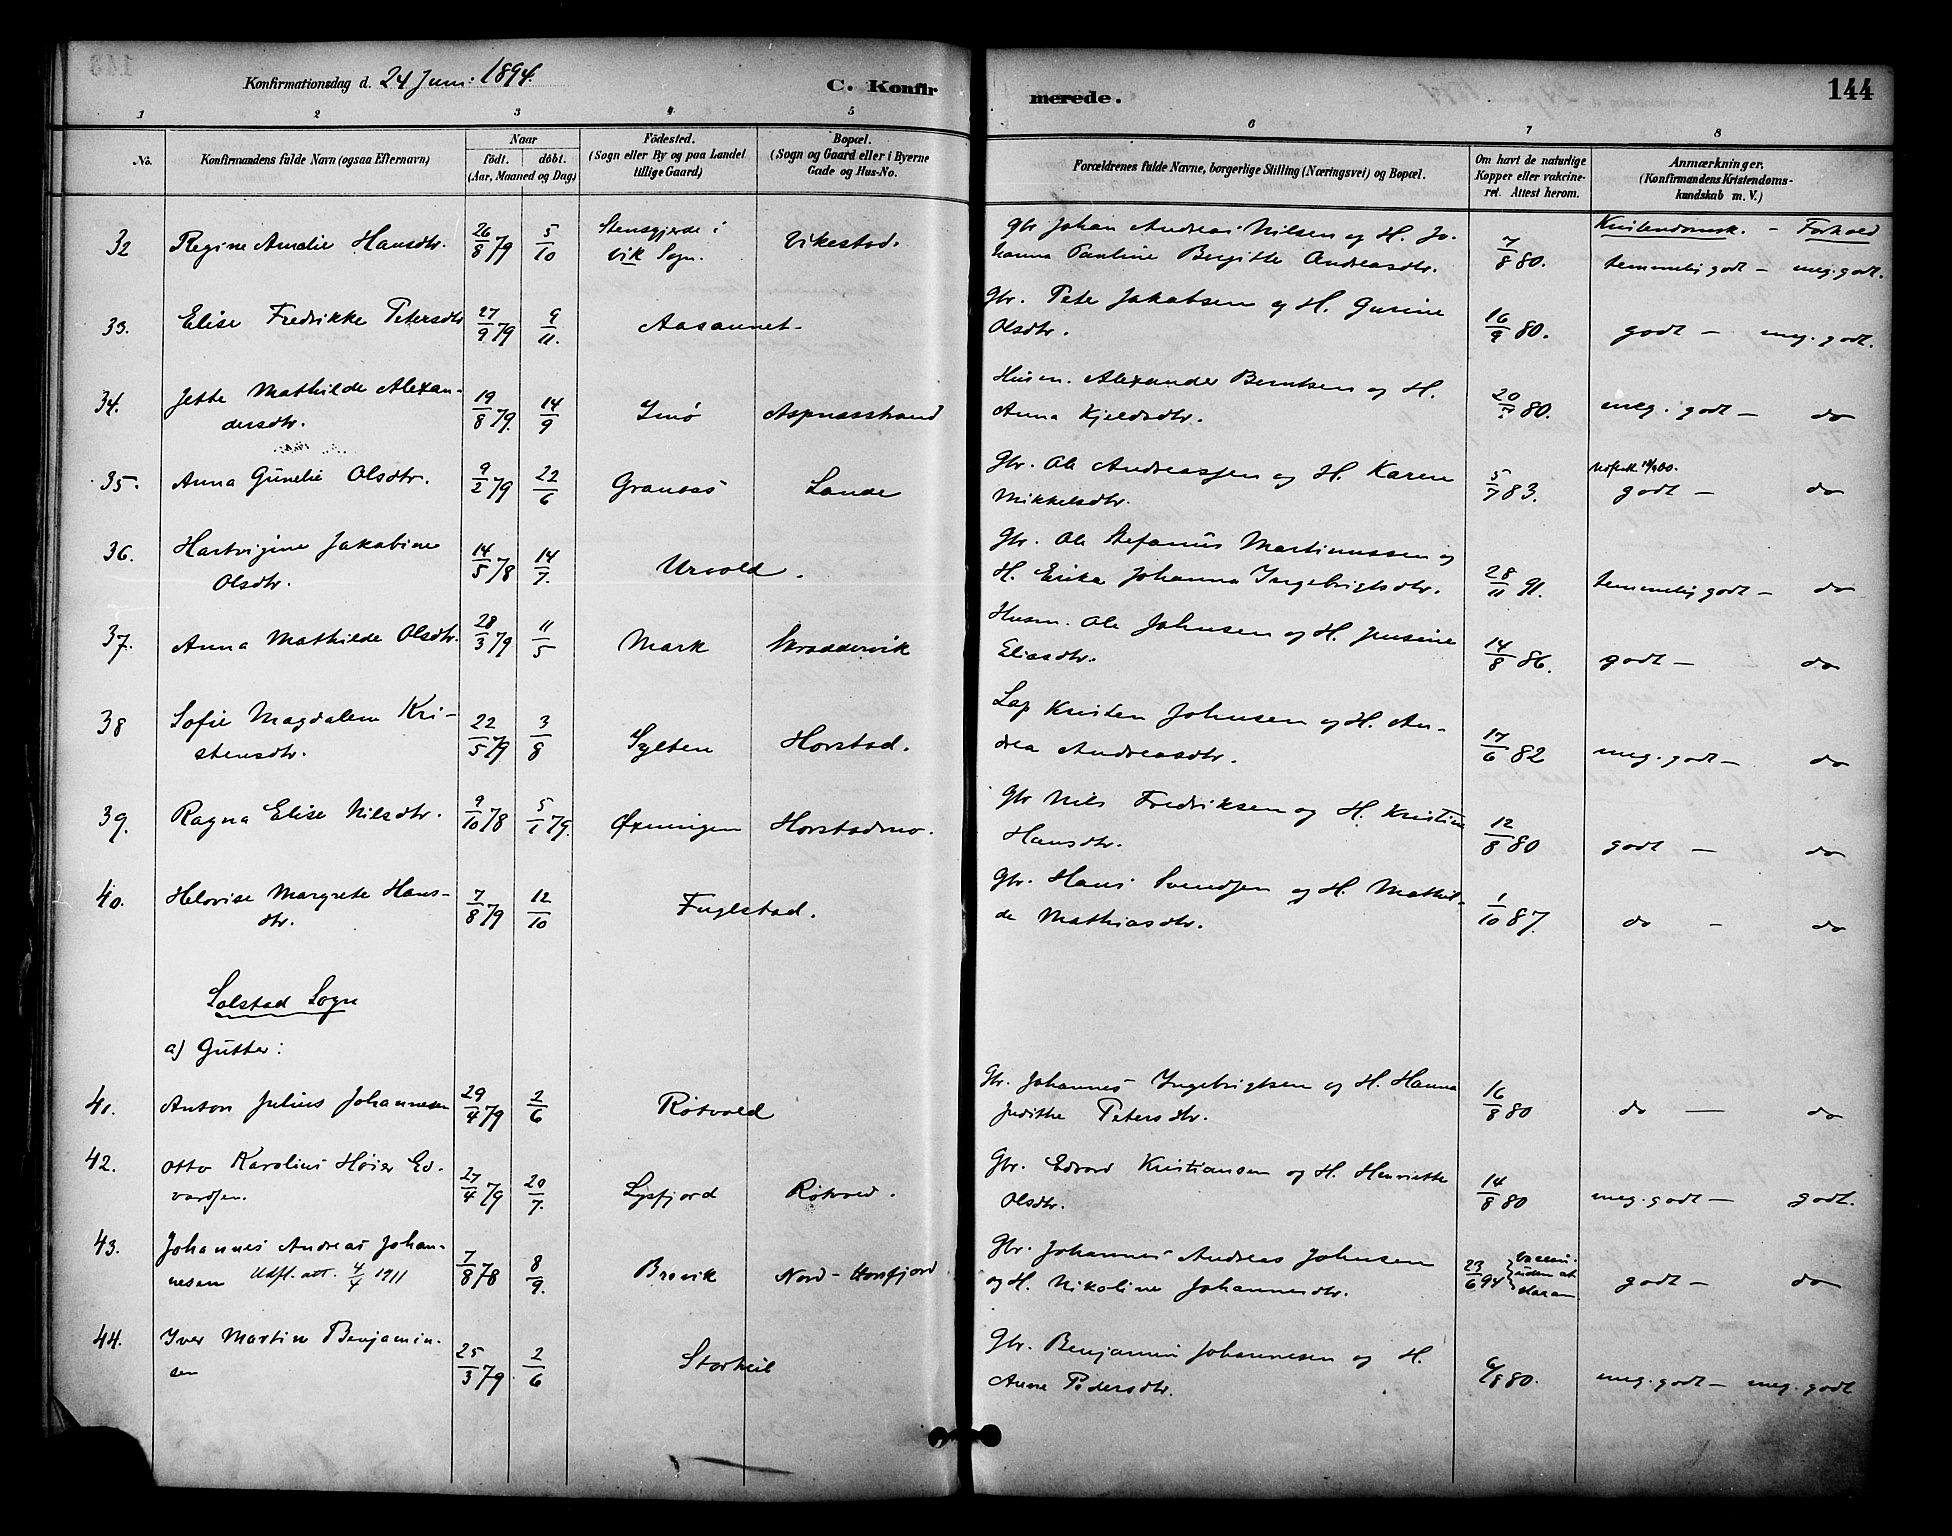 Konfirmationsdag d. 24 Juni 1894.
C. Konfirmerede.
144
1 2 3 4 5 6 7 8
No.
Konfirmandens fulde Navn (ogsaa Efternavn)
Naar
födt. döbt.
(Aar, Maaned og Dag)
Födested.
(Sogn eller By og paa Landet
tillige Gaard)
Bopæl.
(Sogn og Gaard eller i Byerne
Gade og Hus-No.
Forældrenes fulde Navne, borgerlige Stilling (Næringsvei) og Bopæl.
Om havt de naturlige
Kopper eller vakcine-
ret. Attest herom.
Anmærkninger.
(Konfirmandens Kristendoms-
kundskab m. V.)
Kristendomsk. – Forhold
32 Regine Amalie Hansdtr. 26/8 79 5/10 Stensgjerde i
Vik Sogn. Vikestad. Gbr Johan Andreas Nilsen og H. Jo-
hanna Pauline Bergitte Andreasdtr. 7/8 80. temmelig godt – meg. godt.
33. Elise Fredrikke Petersdtr 27/9 79 9/11. Aasaunet Gbr. Peter Jakobsen og H. Gusine
Olsdtr. 16/9 80. godt – meg. godt.
34. Jette Mathilde Alexan-
dersdtr. 19/8 79. 14/9 Imø Aspnæsstrand Husm. Alexander Berntsen og H.
Anna Kjeldsdtr. 20/ 80. meg. godt – do
35. Anna Gunelie Olsdtr. 9/2 79 22/6 Granaas Lande Gbr. Ole Andreassen og H. Karen
Mikkelsdtr. 5/7 83. godt – do
36. Hartvigine Jakobine
Olsdtr. 14/5 78 14/7. Urvold. Gbr. Ole Stefanus Martinussen og
H. Erika Johanna Ingebrigtsdtr. 28/11 91. temmelig godt – do
37. Anna Mathilde Olsdtr. 28/3 79 11/5 Mark Skraddervik Husm. Ole Johnsen og H. Jusine
Eliasdtr. 14/8 86. godt – do
38 Sofie Magdalena Kri-
stensdtr. 22/5 79 3/8 Sylten Horstad. Lap Kristen Johnsen og H. An-
drea Andreasdtr. 17/6 82 meg. godt – do
39. Ragna Elise Nilsdtr. 9/10 78 5/1 79. Øxningen Horstadmo. Gbr Nils Fredriksen og H. Kristine
Hansdtr. 12/8 80 godt – do
40. Helovise Margrete Hans-
dtr. 7/8 79 12/10 Fuglstad. Gbr. Hans Svendsen og H. Mathil-
de Mathiasdtr. 1/10 87. do – do
Solstad Sogn
a) Gutter:
41. Anton Julius Johannesen 29/4 79 2/6 Røtvold Gbr. Johannes Ingebrigtsen og H. Hanna
Judithe Petersdtr. 16/8 80 do – do
42. Otto Karolius Høier Ed-
vardsen. 27/4 79 20/7. Lysfjord Røtvold. Gbr. Edvard Kristiansen og H. Henriette
Olsdtr. 14/8 80 meg. godt – godt.
43. Johannes Andreas Johan-
nesen Udfl. att. 4/4 1911 7/8 78 8/9. Brovik Nord-Horsfjord Gbr. Johannes Andreas Johnsen
og H. Nikoline Johannesdtr. 23/6 94 godt – do
44. Iver Martin Benjamin-
sen 25/3 79 2/6 Storheil Gbr. Benjamin Johannesen og H.
Anne Pedersdtr. 6/8 80. meg. godt – meg. godt